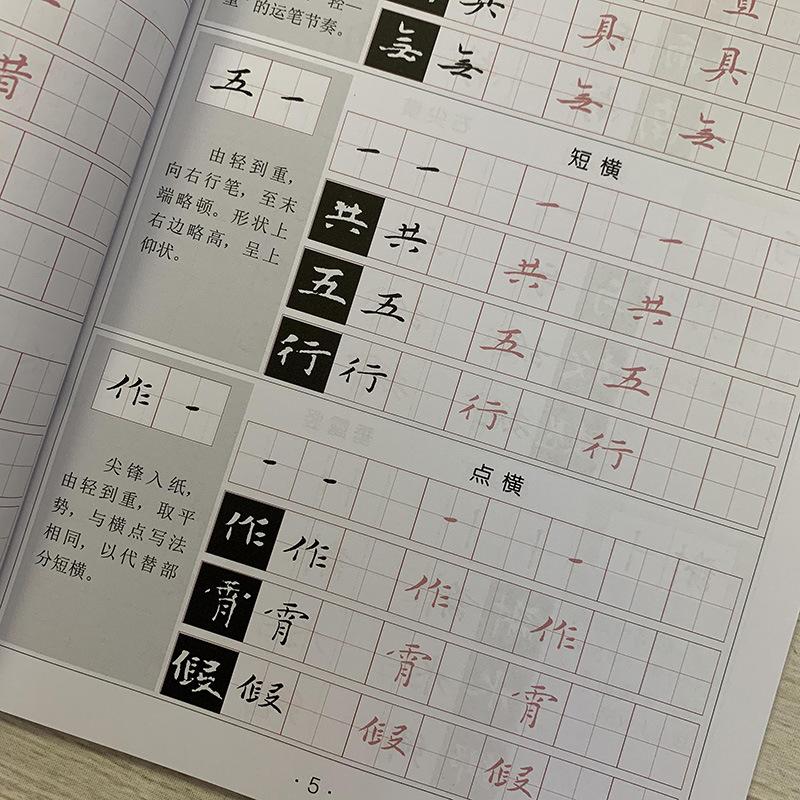 重”的运笔节奏。
具 直
具
無 無 無 無
昔
五 一
由轻到重，
向右行笔，至末
端略顿。形状上
右边略高，呈上
仰状。
短横
一 一 一 一
共 共 共 共
五 五 五 五
行 行 行 行
作 一
尖锋入纸，
由轻到重，取平
势，与横点写法
相同，以代替部
分短横。
点横
作 作 作 作
霄 霄 霄 霄
假 假 假 假
·5·